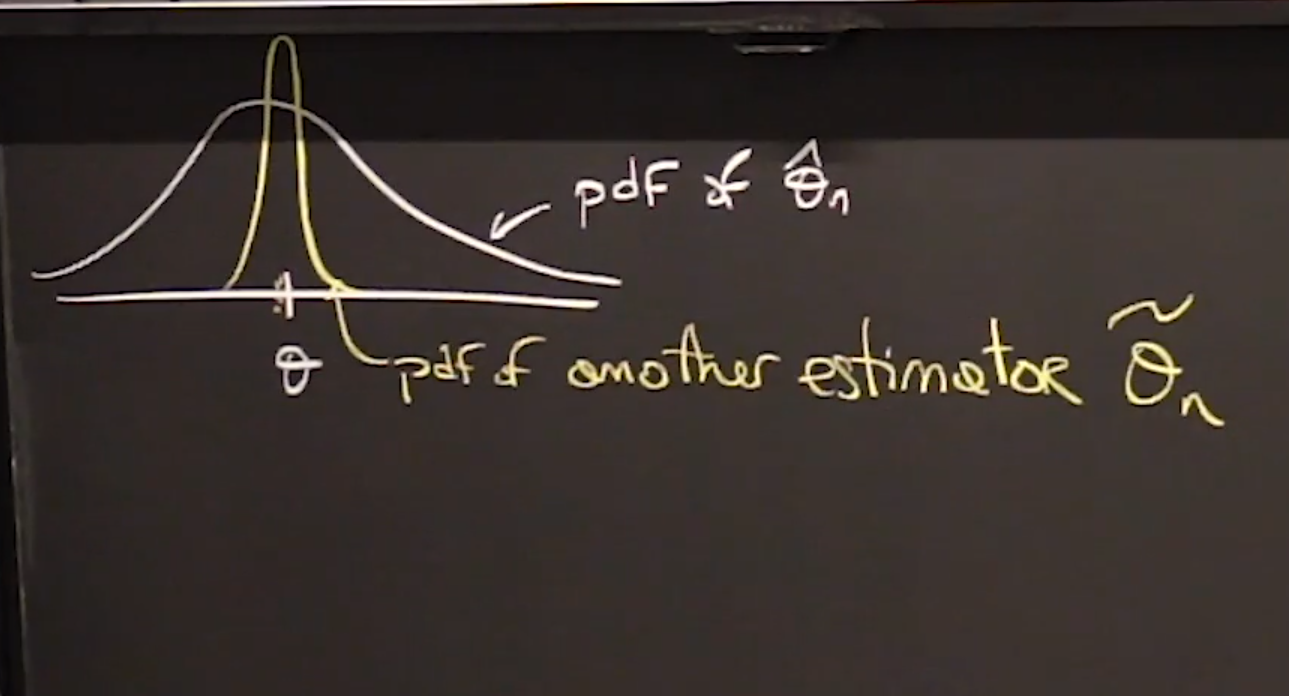 pdf of θ̂ₙ
θ
pdf of another estimator θ̃ₙ